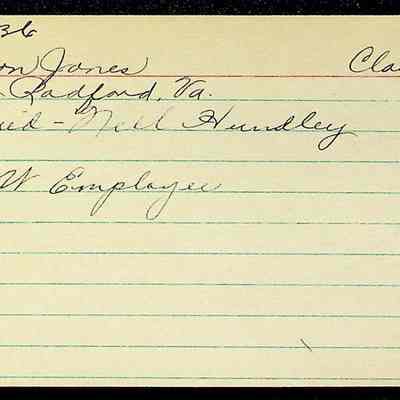 36
on Jones Cla
Radford, Va.
ied - Nell Hundley
W Employee